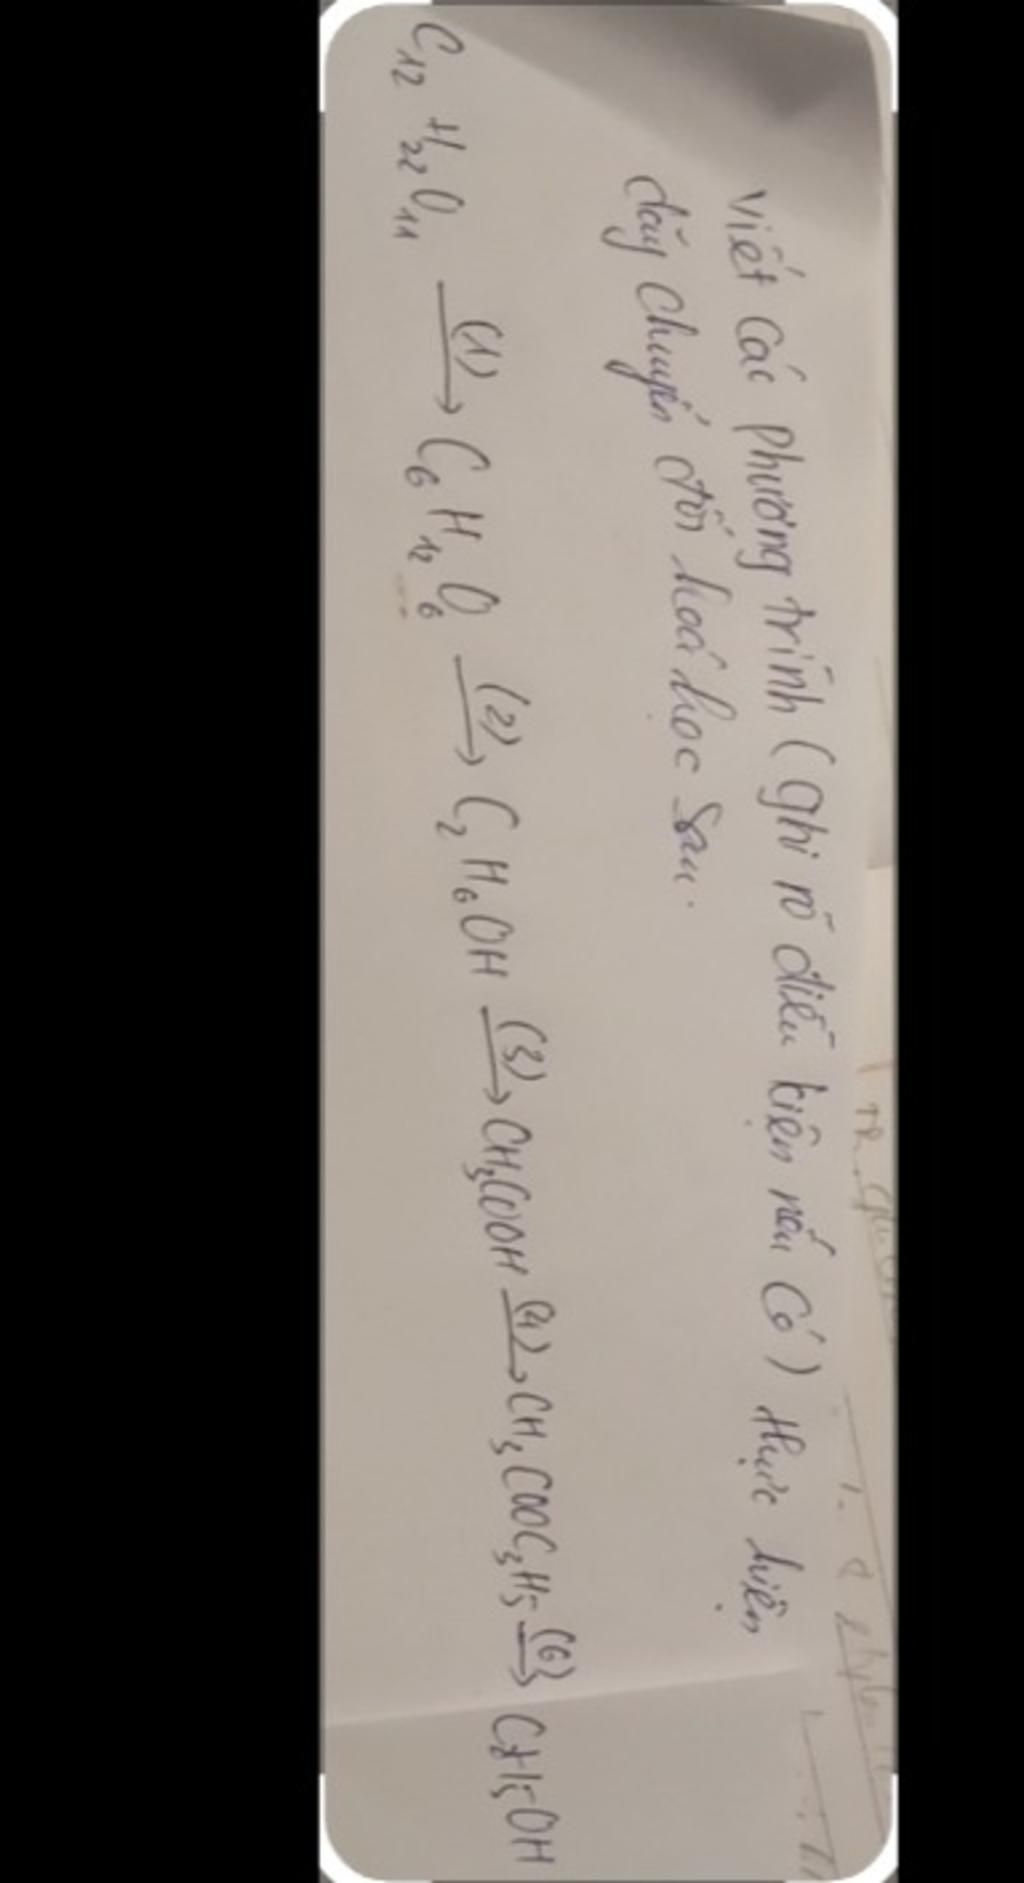 Viết các phương trình (ghi rõ điều kiện nếu có) thực hiện
dãy chuyển đổi hoá học sau.
C₁₂H₂₂O₁₁ —(1)→ C₆H₁₂O₆ —(2)→ C₂H₆OH —(3)→ CH₃COOH —(4)→ CH₃COOC₂H₅ —(6)→ C₂H₅OH